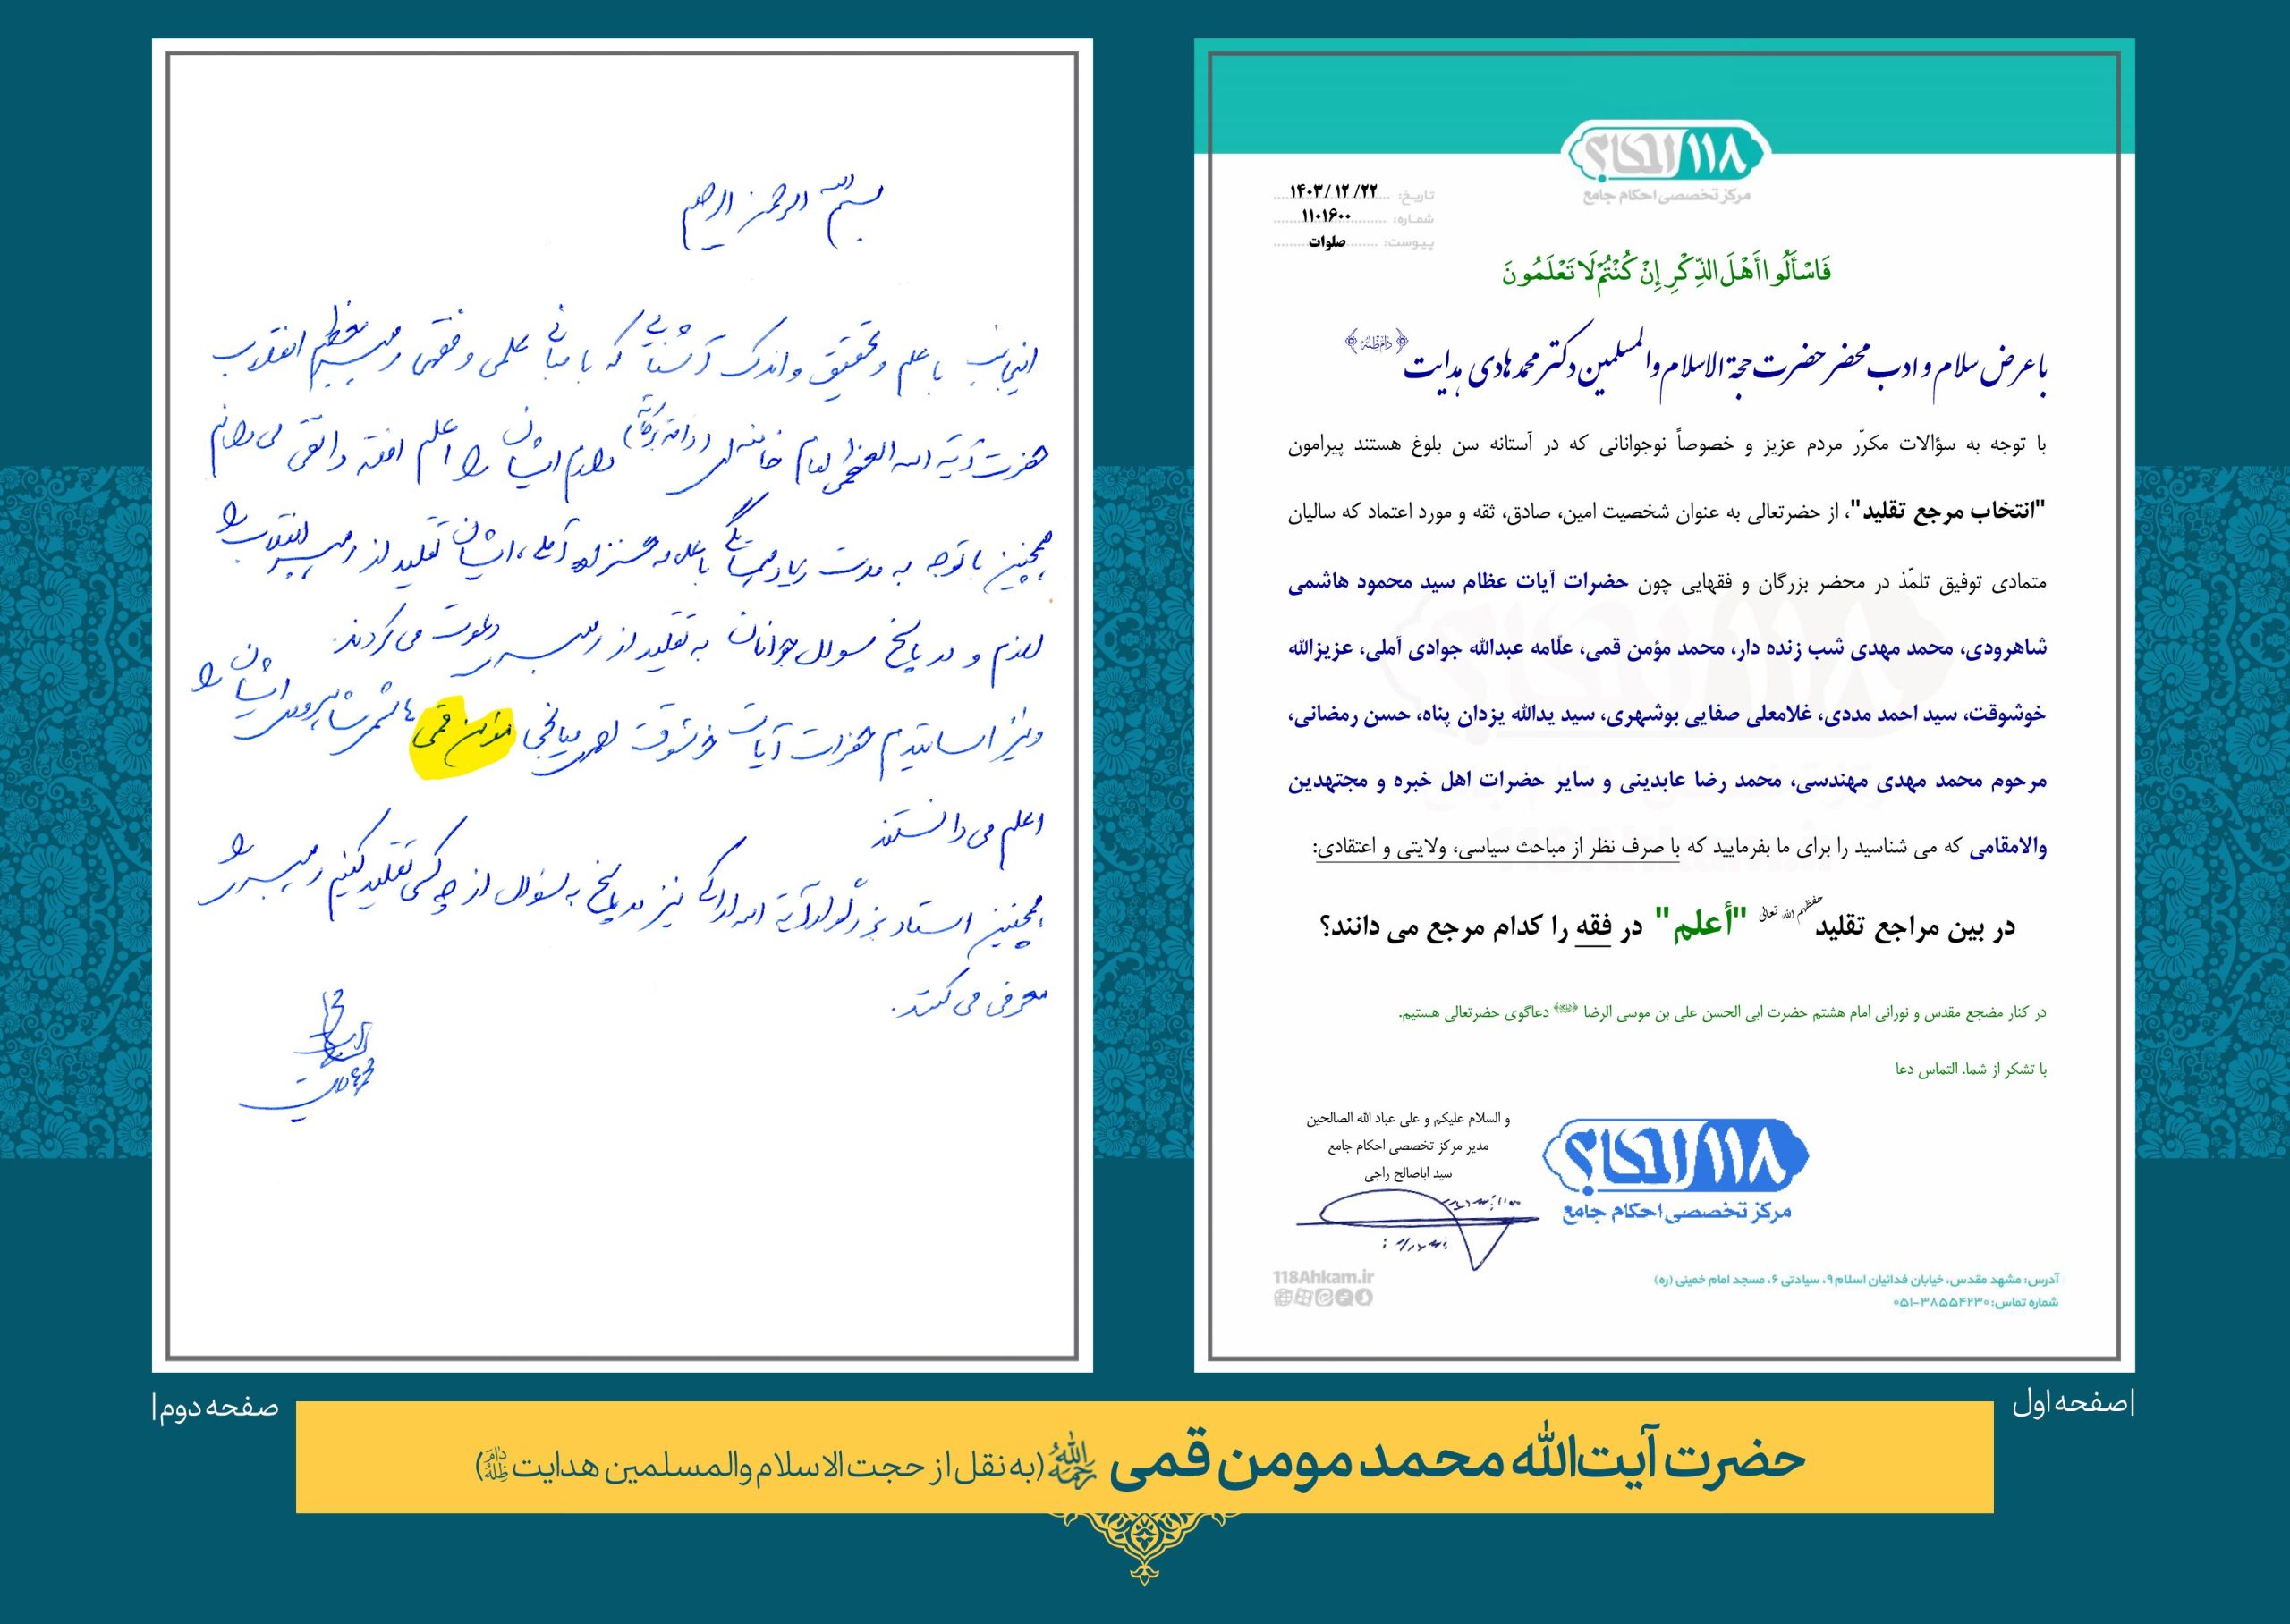 ۱۱۸ احکام
مرکز تخصصی احکام جامع
تاریخ: ۱۴۰۳/۱۲/۲۲
شماره: ۱۱۰۱۶۰۰
پیوست: صلوات
فَاسْأَلُوا أَهْلَ الذِّكْرِ إِنْ كُنْتُمْ لَا تَعْلَمُونَ
با عرض سلام و ادب محضر حضرت حجة الاسلام والمسلمین دکتر محمدهادی هدایت ﴿دام ظله﴾
با توجه به سؤالات مکرّر مردم عزیز و خصوصاً نوجوانانی که در آستانه سن بلوغ هستند پیرامون
"انتخاب مرجع تقلید"، از حضرتعالی به عنوان شخصیت امین، صادق، ثقه و مورد اعتماد که سالیان
متمادی توفیق تلمّذ در محضر بزرگان و فقهایی چون حضرات آیات عظام سید محمود هاشمی
شاهرودی، محمد مهدی شب زنده دار، محمد مؤمن قمی، علّامه عبدالله جوادی آملی، عزیزالله
خوشوقت، سید احمد مددی، غلامعلی صفایی بوشهری، سید یدالله یزدان پناه، حسن رمضانی،
مرحوم محمد مهدی مهندسی، محمد رضا عابدینی و سایر حضرات اهل خبره و مجتهدین
والامقامی که می شناسید را برای ما بفرمایید که با صرف نظر از مباحث سیاسی، ولایتی و اعتقادی:
در بین مراجع تقلید حفظهم الله تعالی "أعلم" در فقه را کدام مرجع می دانند؟
در کنار مضجع مقدس و نورانی امام هشتم حضرت ابی الحسن علی بن موسی الرضا دعاگوی حضرتعالی هستیم.
با تشکر از شما. التماس دعا
و السلام علیکم و علی عباد الله الصالحین
مدیر مرکز تخصصی احکام جامع
سید اباصالح راجی
۱۱۸ احکام
مرکز تخصصی احکام جامع
118Ahkam.ir
آدرس: مشهد مقدس، خیابان فدائیان اسلام ۹، سیادتی ۶، مسجد امام خمینی (ره)
شماره تماس: ۳۸۵۵۴۲۳۰-۰۵۱
|صفحه اول
بسم الله الرحمن الرحیم
اینجانب با علم و تحقیق و اندک آشنایی که با مبانی علمی و فقهی رهبر معظم انقلاب
حضرت آیة الله العظمی امام خامنه ای (دامت برکاته) دارم ایشان را اعلم افقه و اتقی می دانم
همچنین با توجه به مدت زیاد همسایگی با علامه حسن زاده آملی، ایشان تقلید از رهبر انقلاب را
لازم و در پاسخ سوال جوانان به تقلید از رهبری دعوت می کردند.
و نیز اساتیدم حضرات آیات خوشوقت احمدی میانجی مؤمن قمی هاشمی شاهرودی ایشان را
اعلم می دانستند
همچنین استاد بزرگوار آیة الله اراکی نیز در پاسخ به سؤال از چه کسی تقلید کنیم رهبری را
معرفی می کنند.
صفحه دوم|
حضرت آیت‌الله محمد مومن قمی رحمه الله (به نقل از حجت الاسلام والمسلمین هدایت دام ظله)